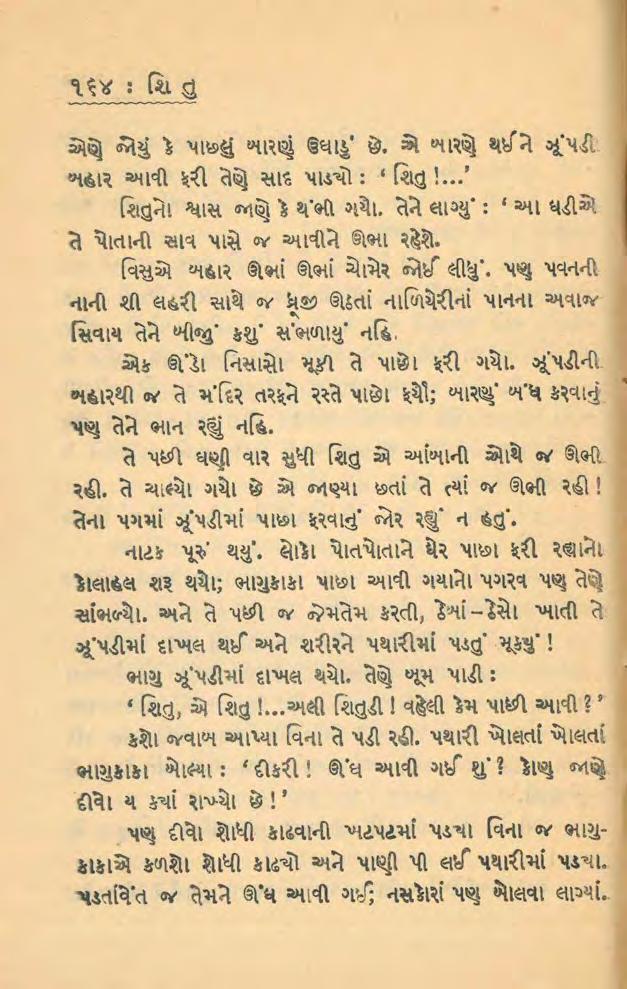 ૧૬૪ : શિ તુ
એણે જોયું કે પાછલું બારણું ઉઘાડું છે. એ બારણે થઈને ઝૂંપડી
બહાર આવી ફરી તેણે સાદ પાડ્યો : ‘ શિતુ !...’
શિતુનો શ્વાસ જાણે કે થંભી ગયો. તેને લાગ્યું : ‘ આ ઘડીએ
તે પોતાની સાવ પાસે જ આવીને ઊભા રહેશે.
વિસુએ બહાર ઊભાં ઊભાં ચોમેર જોઈ લીધું. પણ પવનની
નાની શી લહરી સાથે જ ધ્રૂજી ઊઠતાં નાળિયેરીનાં પાનના અવાજ
સિવાય તેને બીજું કશું સંભળાયું નહિ.
એક ઊંડો નિસાસો મૂકી તે પાછો ફરી ગયો. ઝૂંપડીની
બહારથી જ તે મંદિર તરફને રસ્તે પાછો ફર્યો; બારણું બંધ કરવાનું
પણ તેને ભાન રહ્યું નહિ.
તે પછી ઘણી વાર સુધી શિતુ એ આંબાની ઓથે જ ઊભી
રહી. તે ચાલ્યો ગયો છે એ જાણ્યા છતાં તે ત્યાં જ ઊભી રહી !
તેના પગમાં ઝૂંપડીમાં પાછા ફરવાનું જોર રહ્યું ન હતું.
નાટક પૂરું થયું. લોકો પોતપોતાને ઘેર પાછા ફરી રહ્યાનો
કોલાહલ શરૂ થયો; ભાગુકાકા પાછા આવી ગયાનો પગરવ પણ તેણે
સાંભળ્યો. અને તે પછી જ જેમતેમ કરતી, ઠેબાં–ઠેસો ખાતી તે
ઝૂંપડીમાં દાખલ થઈ અને શરીરને પથારીમાં પડતું મૂક્યું !
ભાગુ ઝૂંપડીમાં દાખલ થયો. તેણે બૂમ પાડી :
‘ શિતુ, એ શિતુ !...અલી શિતુડી ! વહેલી કેમ પાછી આવી ? ’
કશો જવાબ આપ્યા વિના તે પડી રહી. પથારી ખોલતાં ખોલતાં
ભાગુકાકા બોલ્યા : ‘દીકરી ! ઊંઘ આવી ગઈ શું ? કોણ જાણે
દીવો ય ક્યાં રાખ્યો છે !’
પણ દીવો શોધી કાઢવાની ખટપટમાં પડ્યા વિના જ ભાગુ-
કાકાએ કળશો શોધી કાઢ્યો અને પાણી પી લઈ પથારીમાં પડ્યા.
પડતાંવેંત જ તેમને ઊંઘ આવી ગઈ; નસકોરાં પણ બોલવા લાગ્યાં.